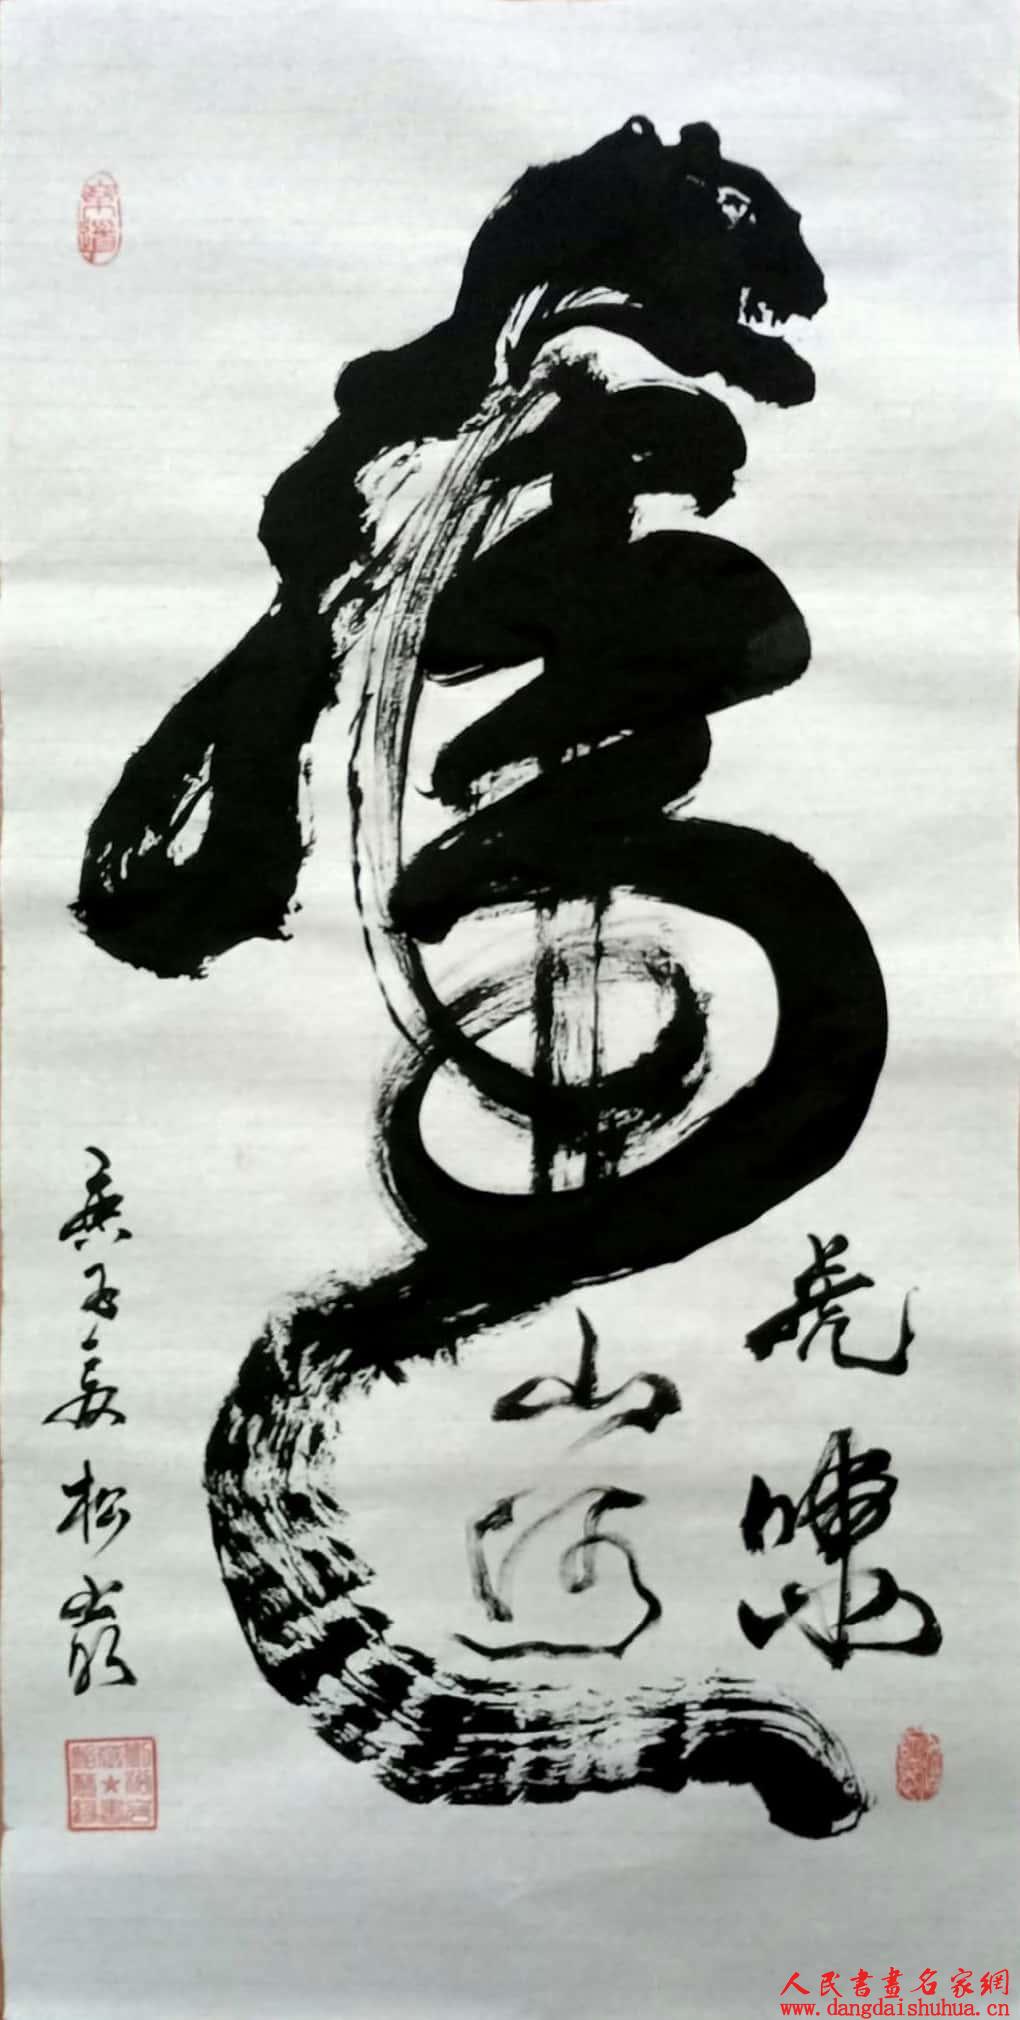 虎
虎嘯
山河
庚子夏松巖
人民書畫名家網
www.dangdaishuhua.cn